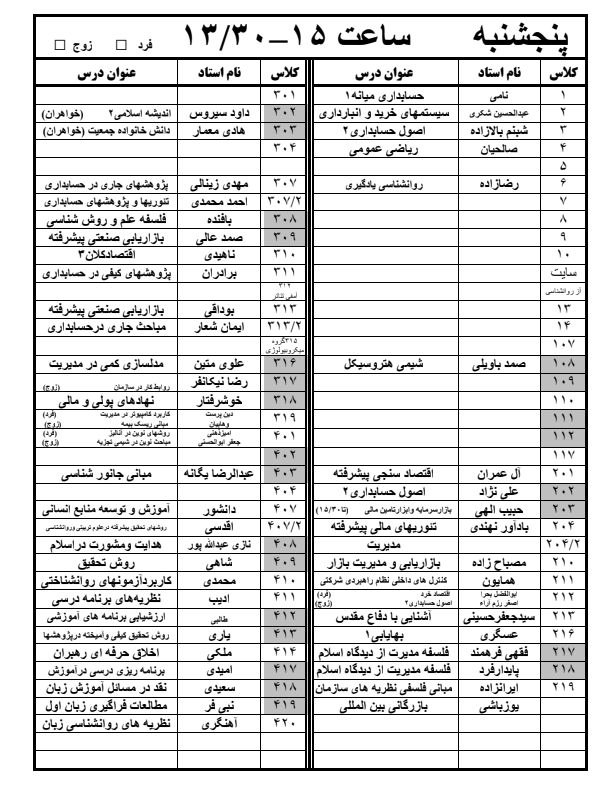 پنجشنبه ساعت ۱۵_۱۳/۳۰ فرد □ زوج □
کلاس نام استاد عنوان درس
۱ نامی حسابداری میانه۱
۲ عبدالحسین شکری سیستمهای خرید و انبارداری
۳ شبنم بالازاده اصول حسابداری۲
۴ صالحیان ریاضی عمومی
۵
۶ رضازاده روانشناسی یادگیری
۷
۸
۹
۱۰
سایت
از روانشناسی
۱۳
۱۴
۱۰۷
۱۰۸ صمد باویلی شیمی هتروسیکل
۱۰۹
۱۱۰
۱۱۱
۱۱۲
۱۱۷
۲۰۱ آل عمران اقتصاد سنجی پیشرفته
۲۰۲ علی نژاد اصول حسابداری۲
۲۰۳ حبیب الهی بازارسرمایه وابزارتامین مالی (تا۱۵/۳۰)
۲۰۴ یادآور نهندی تئوریهای مالی پیشرفته
۲۰۴/۲ مدیریت
۲۱۰ مصباح زاده بازاریابی و مدیریت بازار
۲۱۱ همایون کنترل های داخلی نظام راهبردی شرکتی
۲۱۲ ابوالفضل بحرا اقتصاد خرد (فرد)
اصغر رزم آراء اصول حسابداری۲ (زوج)
۲۱۳ سیدجعفرحسینی آشنایی با دفاع مقدس
۲۱۶ عسگری بهایابی۱
۲۱۷ فقهی فرهمند فلسفه مدیریت از دیدگاه اسلام
۲۱۸ پایدارفرد فلسفه مدیریت از دیدگاه اسلام
۲۱۹ ایرانزاده مبانی فلسفی نظریه های سازمان
یوزباشی بازرگانی بین المللی
کلاس نام استاد عنوان درس
۳۰۱
۳۰۲ داود سیروس اندیشه اسلامی۲ (خواهران)
۳۰۳ هادی معمار دانش خانواده جمعیت (خواهران)
۳۰۴
۳۰۷ مهدی زینالی پژوهشهای جاری در حسابداری
۳۰۷/۲ احمد محمدی تئوریها و پژوهشهای حسابداری
۳۰۸ بافنده فلسفه علم و روش شناسی
۳۰۹ صمد عالی بازاریابی صنعتی پیشرفته
۳۱۰ ناهیدی اقتصادکلان۳
۳۱۱ برادران پژوهشهای کیفی در حسابداری
۳۱۲
آمفی تئاتر
۳۱۳ بوداقی بازاریابی صنعتی پیشرفته
۳۱۳/۲ ایمان شعار مباحث جاری درحسابداری
۳۱۵گروه
میکروبیولوژی
۳۱۶ علوی متین مدلسازی کمی در مدیریت
۳۱۷ رضا نیکانفر روابط کار در سازمان (زوج)
۳۱۸ خوشرفتار نهادهای پولی و مالی
۳۱۹ دین پرست کاربرد کامپیوتر در مدیریت (فرد)
وهابیان مبانی ریسک بیمه (زوج)
۴۰۱ امیرذهنی روشهای نوین در آنالیز (فرد)
جعفر ابوالحسنی مباحث نوین در شیمی تجزیه (زوج)
۴۰۲
۴۰۳ عبدالرضا یگانه مبانی جانور شناسی
۴۰۴
۴۰۷ دانشور آموزش و توسعه منابع انسانی
۴۰۷/۲ اقدسی روشهای تحقیق پیشرفته درعلوم تربیتی وروانشناسی
۴۰۸ نازی عبدالله پور هدایت ومشورت دراسلام
۴۰۹ شاهی روش تحقیق
۴۱۰ محمدی کاربردآزمونهای روانشناختی
۴۱۱ ادیب نظریه‌های برنامه درسی
۴۱۲ طالبی ارزشیابی برنامه های آموزشی
۴۱۳ یاری روش تحقیق کیفی وآمیخته درپژوهشها
۴۱۴ ملکی اخلاق حرفه ای رهبران
۴۱۷ امیدی برنامه ریزی درسی درآموزش
۴۱۸ سعیدی نقد در مسائل آموزش زبان
۴۱۹ نبی فر مطالعات فراگیری زبان اول
۴۲۰ آهنگری نظریه های روانشناسی زبان